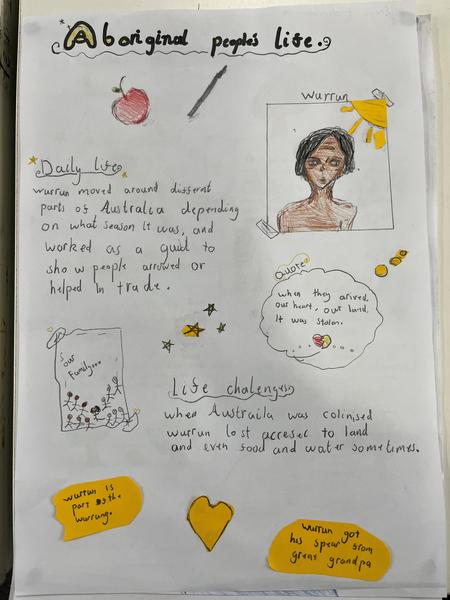 Aboriginal people's life.
Wurrun
Daily life
wurrun moved around different
parts of Australia depending
on what season it was, and
worked as a guid to
show people arrowed or
helped in trade.
Quote
when they arived,
our heart, our land,
It was stolen.
our
Family...
Life chalenges
when Austraila was colinised
wurrun lost accesel to land
and even food and water sometimes.
wurrun is
part of the
wurrung.
Wurrun got
his spear from
great grandpa